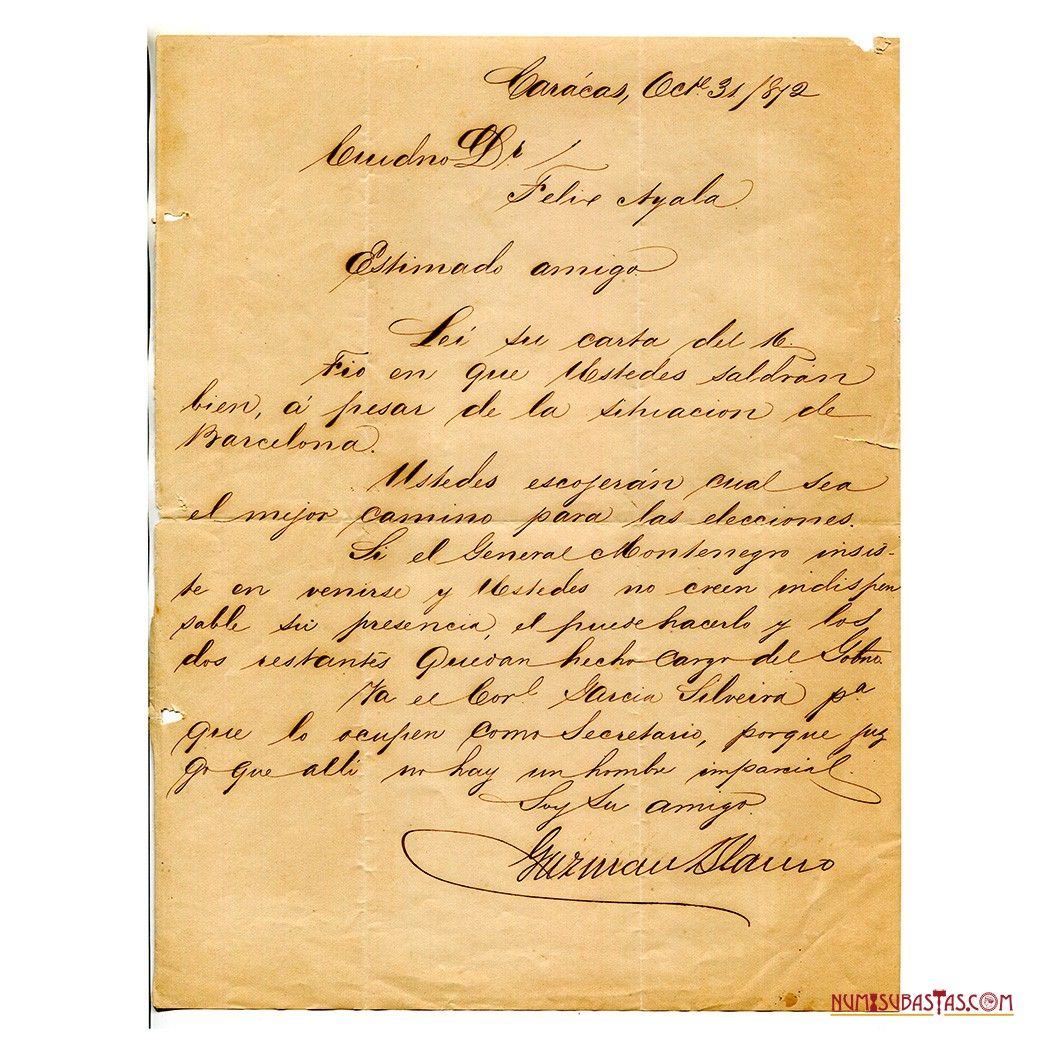 Carácas, Octe 31/872
Ciudno Dr /
Felix Ayala
Estimado amigo
Leí su carta del 16.
Fio en que Ustedes saldrán
bien, á pesar de la situacion de
Barcelona.
Ustedes escojerán cual sea
el mejor camino para las elecciones.
Si el General Montenegro insis-
te en venirse y Ustedes no creen indispen
sable su presencia, el puede hacerlo y los
dos restantes quedan hecho cargo del Gobno.
Va el Corl. Garcia Silveira pa
que lo ocupen como Secretario, porque juz
go que alli no hay un hombre imparcial.
Soy su amigo.
Guzman Blanco
NUMISUBASTAS.COM